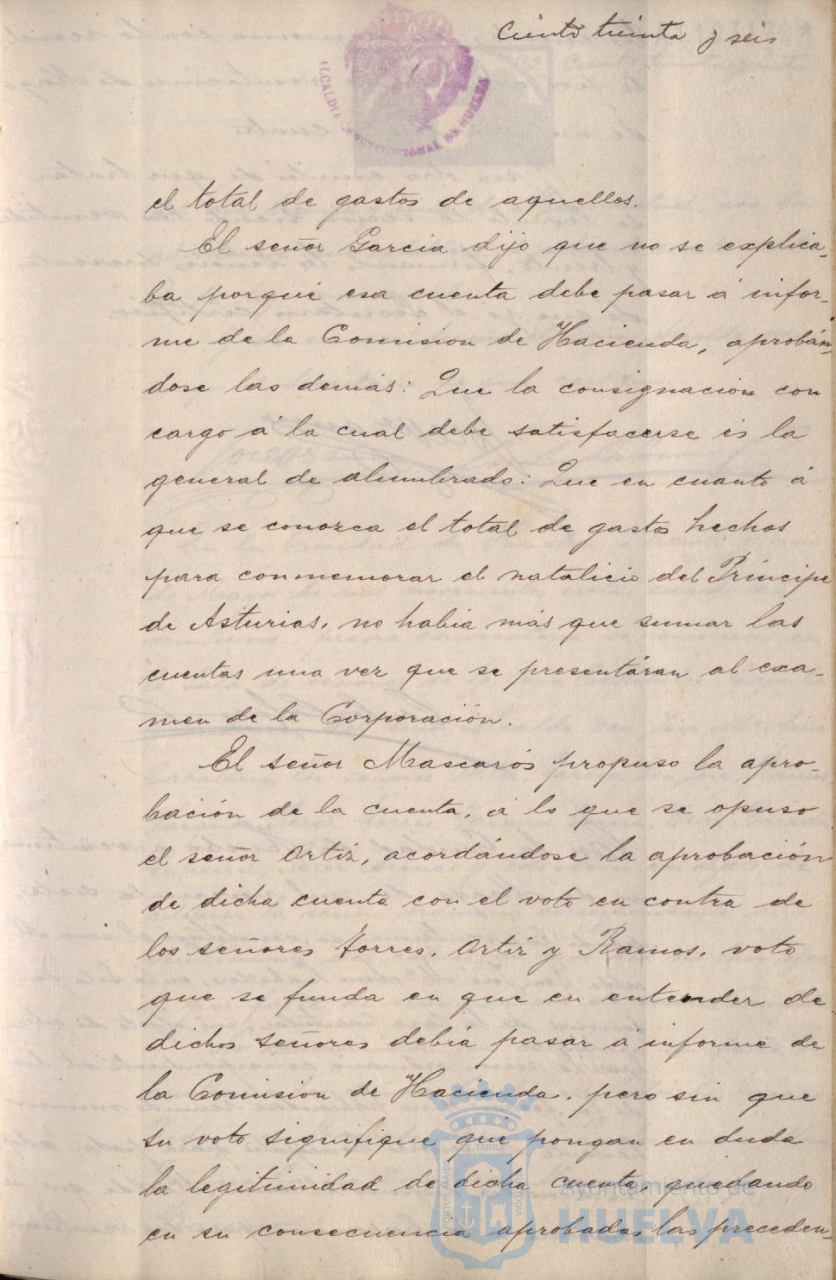 ciento treinta y seis
ALCALDIA CONSTITUCIONAL DE HUELVA
el total de gastos de aquellos.
El señor Garcia dijo que no se explica-
ba porqué esa cuenta debe pasar á infor-
me de la Comision de Hacienda, aprobán-
dose las demás: Que la consignacion con
cargo á la cual debe satisfacerse es la
general de alumbrado: Que en cuanto á
que se conozca el total de gastos hechos
para conmemorar el natalicio del Príncipe
de Asturias, no había más que sumar las
cuentas una vez que se presentáran al exa-
men de la Corporación.
El señor Mascarós propuso la apro-
bación de la cuenta, á lo que se opuso
el señor Ortiz, acordándose la aprobación
de dicha cuenta con el voto en contra de
los señores Torres, Ortiz y Ramos, voto
que se funda en que en entender de
dichos señores debia pasar á informe de
la Comisión de Hacienda, pero sin que
su voto signifique que pongan en duda
la legitimidad de dicha cuenta, quedando
en su consecuencia aprobadas las preceden-
Ayuntamiento de
HUELVA